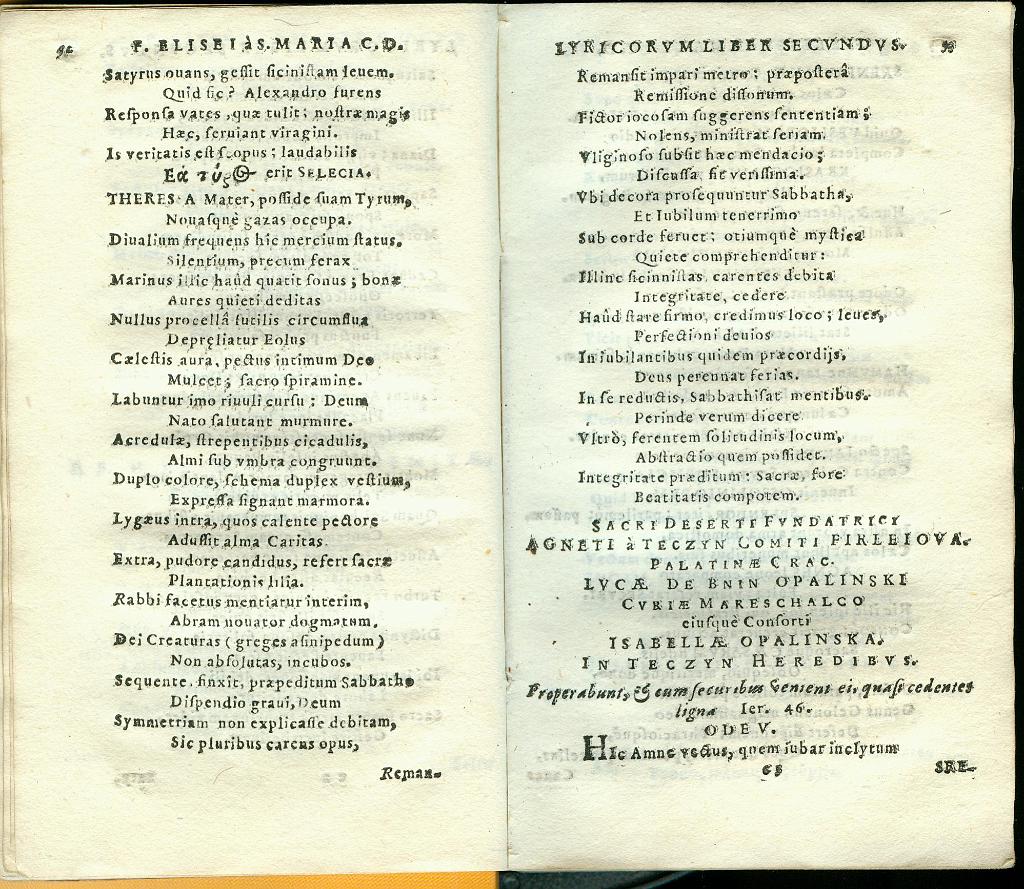 92 F. ELISEI à S. MARIA C. D.
Satyrus ouans, gessit sicinistam leuem.
Quid sic? Alexandro furens
Responsa vates, quæ tulit; nostræ magis
Hæc, seruiant viragini.
Is veritatis est scopus; laudabilis
erit SELECIA.
THERESA Mater, posside suam Tyrum,
Nouasquè gazas occupa.
Diualium frequens hic mercium status.
Silentium, precum ferax
Marinus illic haûd quatit sonus; bonæ
Aures quieti deditas
Nullus procellâ sutilis circumflua
Depręliatur Eolus
Cælestis aura, pectus intimum Deo
Mulcet; sacro spiramine.
Labuntur imo riuuli cursu; Deum
Nato salutant murmure.
Acredulæ, strepentibus cicadulis,
Almi sub vmbra congruunt.
Duplo colore, schema duplex vestium,
Expressa signant marmora.
Lygæus intra, quos calente pectore
Adussit alma Caritas.
Extra, pudore candidus, refert sacræ
Plantationis lilia.
Rabbi facetus mentiatur interim,
Abram nouator dogmatum.
Dei Creaturas (greges asinipedum)
Non absolutas, incubos.
Sequente, finxit, præpeditum Sabbatho
Dispendio graui, Deum
Symmetriam non explicasse debitam,
Sic pluribus carcus opus,
Reman-
LYRICORVM LIBER SECVNDVS. 93
Remansit impari metro; præposterâ
Remissione dissonum.
Fictor iocosam suggerens sententiam;
Nolens, ministrat seriam.
Vliginoso subsit hæc mendacio;
Discussa, fit verissima.
Vbi decora prosequuntur Sabbatha,
Et Iubilum tenerrimo
Sub corde feruet; otiumquè mystica
Quiete comprehenditur:
Illinc sicinnistas, carentes debita
Integritate, cedere
Haûd stare firmo, credimus loco; leues,
Perfectioni deuios
In iubilantibus quidem præcordijs,
Deus perennat ferias.
In se reductis, Sabbathisat mentibus.
Perinde verum dicere
Vltrò, ferentem solitudinis locum,
Abstractio quem possidet.
Integritate præditum: Sacræ, fore
Beatitatis compotem.
SACRI DESERTI FVNDATRICI
AGNETI à TECZYN COMITI FIRLEIOVA.
PALATINÆ CRAC.
LVCÆ DE BNIN OPALINSKI
CVRIÆ MARESCHALCO
eiusquè Consorti
ISABELLÆ OPALINSKA.
IN TECZYN HEREDIBVS.
Properabunt, & cum securibus venient ei, quasi cedentes
ligna Ier. 46.
ODE V.
HIc Amne vectus, quem iubar inclytum
G3 SRE-